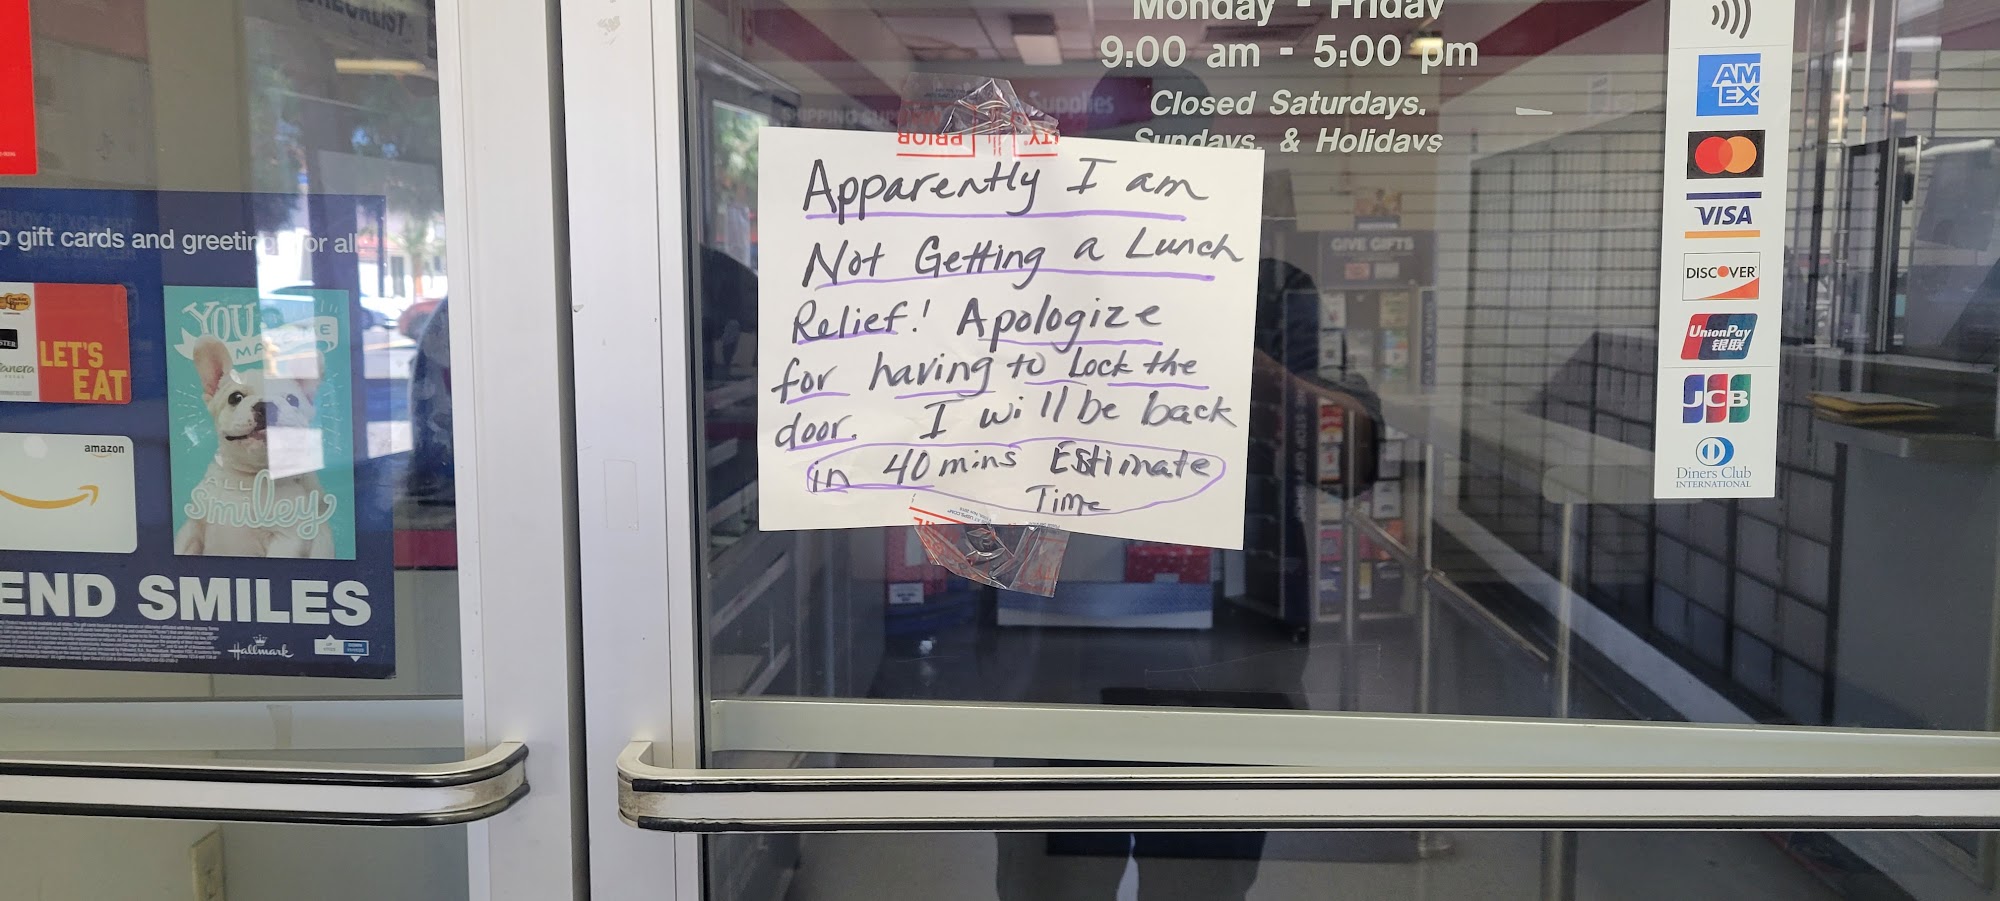 Monday - Friday
9:00 am - 5:00 pm
Closed Saturdays,
Sundays, & Holidays
SHIPPING
Supplies
PRIOR
TY
Apparently I am
Not Getting a Lunch
Relief! Apologize
for having to Lock the
door. I will be back
in 40 mins Estimate
Time
gift cards and greeting or all
LET'S
EAT
anera
amazon
YOU
MA
ALL
Smiley
END SMILES
Hallmark
GIVE GIFTS
AM
EX
VISA
DISCOVER
UnionPay
银联
JCB
Diners Club
INTERNATIONAL